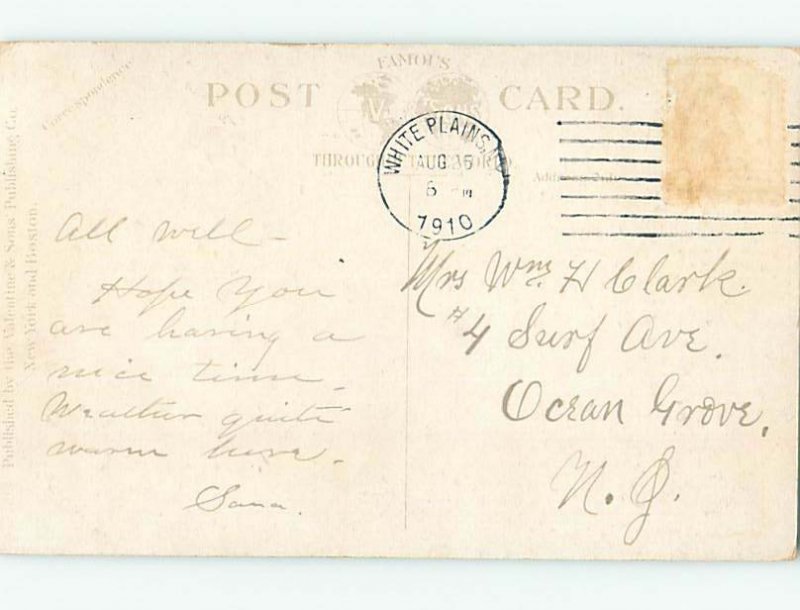 Correspondence
FAMOUS
POST CARD.
THROUGHOUT THE WORLD.
Published by the Valentine & Sons Publishing Co.
New York and Boston.
WHITE PLAINS, N.Y.
AUG 15
6 PM
1910
All well —
Hope you
are having a
nice time.
Weather quite
warm here.
Mrs Wm. H Clark.
#4 Surf Ave.
Ocean Grove,
N. J.